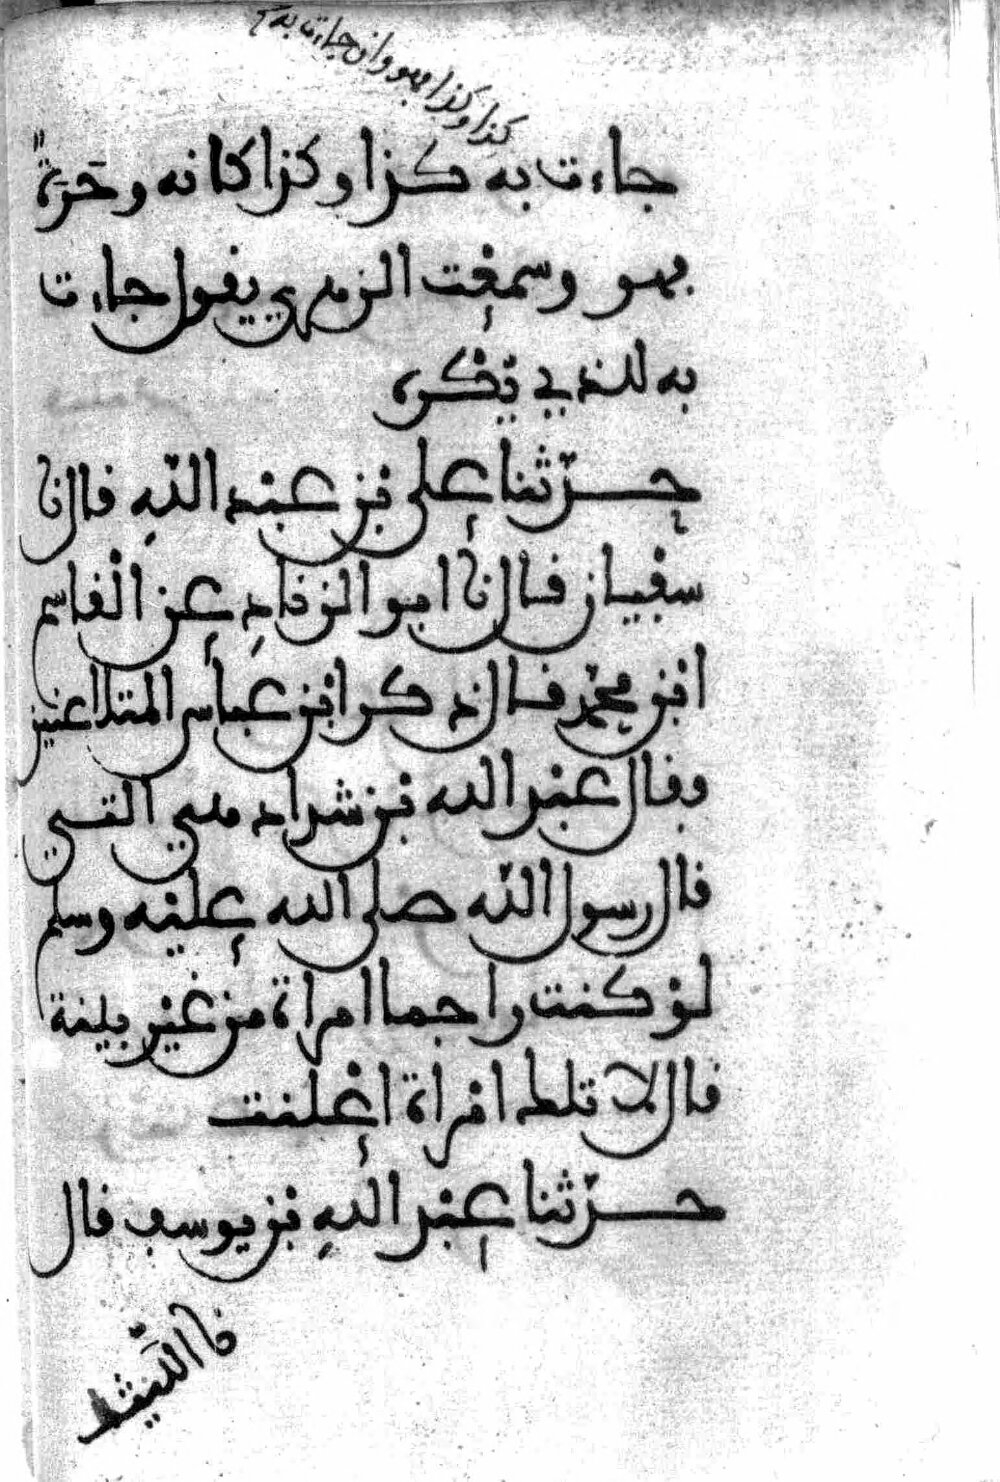 كذا وكذا فهو وان جاءت به
جاءت به كذا وكذا كانه وحرة
فهو وسمعت الزهري يقول جاءت
به للذي يكره
حدثنا علي بن عبد الله قال نا
سفيان قال نا ابو الزناد عن القاسم
ابن محمد قال ذكر ابن عباس المتلاعنين
وقال عبد الله بن شداد هي التي
قال رسول الله صلى الله عليه وسلم
لو كنت راجما امراة من غير بينة
قال لا تلك امراة اعلنت
حدثنا عبد الله بن يوسف قال
نا الليث